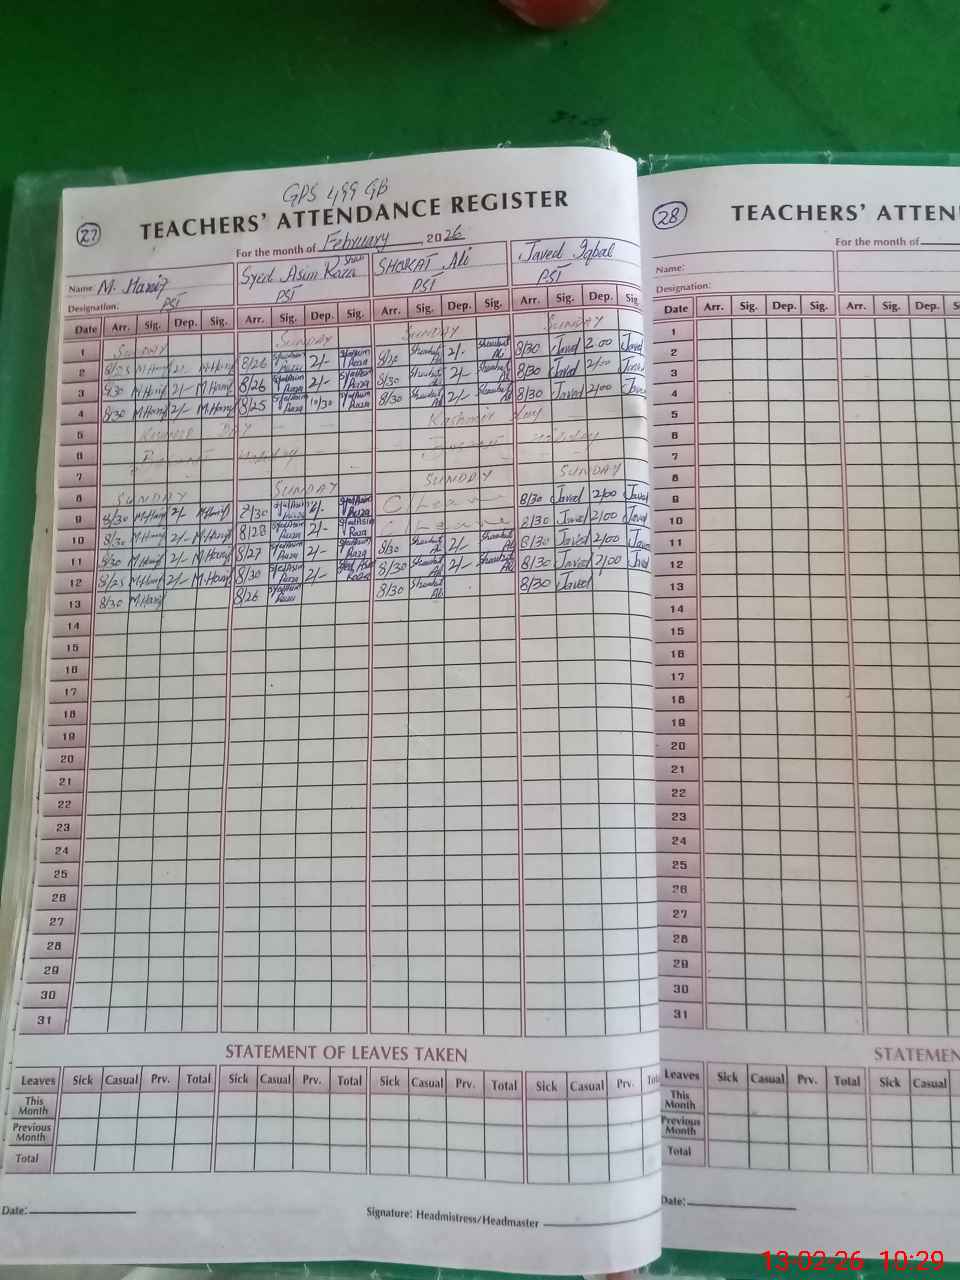 GPS 499 GB
27
TEACHERS' ATTENDANCE REGISTER
For the month of February 2026
Name: M. Hanif Syed Asim Raza Shah SHOKAT Ali Javed Iqbal
Designation: PST PST PST PST
Date Arr. Sig. Dep. Sig. Arr. Sig. Dep. Sig. Arr. Sig. Dep. Sig. Arr. Sig. Dep. Sig.
1 SUNDAY SUNDAY SUNDAY SUNDAY
2 8/25 M.Hanif 2/- M.Hanif 8/26 Syed Asim Raza 2/- Syed Asim Raza 8/30 Shoukat Ali 2/- Shoukat Ali 8/30 Javed 2:00 Javed
3 8/30 M.Hanif 2/- M.Hanif 8/26 Syed Asim Raza 2/- Syed Asim Raza 8/30 Shoukat Ali 2/- Shoukat Ali 8/30 Javed 2:00 Javed
4 8/30 M.Hanif 2/- M.Hanif 8/25 Syed Asim Raza 10/30 Syed Asim Raza 8/30 Shoukat Ali 2/- Shoukat Ali 8/30 Javed 2/00 Javed
5 Kashmir Day Kashmir day
6 Basant Holiday Basant Holiday
7
8 SUNDAY SUNDAY SUNDAY SUNDAY
9 8/30 M.Hanif 2/- M.Hanif 8/30 Syed Asim Raza 2/- Syed Asim Raza C/Leave 8/30 Javed 2/00 Javed
10 8/30 M.Hanif 2/- M.Hanif 8/28 Syed Asim Raza 2/- Syed Asim Raza C/Leave 8/30 Javed 2/00 Javed
11 8/30 M.Hanif 2/- M.Hanif 8/27 Syed Asim Raza 2/- Syed Asim Raza 8/30 Shoukat Ali 2/- Shoukat Ali 8/30 Javed 2/00 Javed
12 8/25 M.Hanif 2/- M.Hanif 8/30 Syed Asim Raza 2/- Syed Asim Raza 8/30 Shoukat Ali 2/- Shoukat Ali 8/30 Javed 2/00 Javed
13 8/30 M.Hanif 8/26 Syed Asim Raza 8/30 Shoukat Ali 8/30 Javed
14
15
16
17
18
19
20
21
22
23
24
25
26
27
28
29
30
31
STATEMENT OF LEAVES TAKEN
Leaves Sick Casual Prv. Total Sick Casual Prv. Total Sick Casual Prv. Total Sick Casual Prv.
This Month
Previous Month
Total
Date:
Signature: Headmistress/Headmaster
28
TEACHERS' ATTEN
For the month of
Name:
Designation:
Date Arr. Sig. Dep. Sig. Arr. Sig. Dep.
1
2
3
4
5
6
7
8
9
10
11
12
13
14
15
16
17
18
19
20
21
22
23
24
25
26
27
28
29
30
31
STATEMEN
Leaves Sick Casual Prv. Total Sick Casual
This Month
Previous Month
Total
Date:
13-02-26 10:29